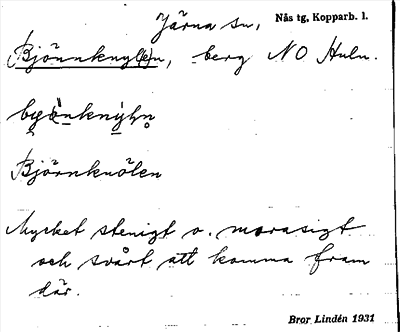 Järna sn, Nås tg, Kopparb. l.
Björnnknyl(e)n, berg NO Huln.
Björnknölen
Mycket stenigt o. morasigt
och svårt att komma fram
där.
Bror Lindén 1931